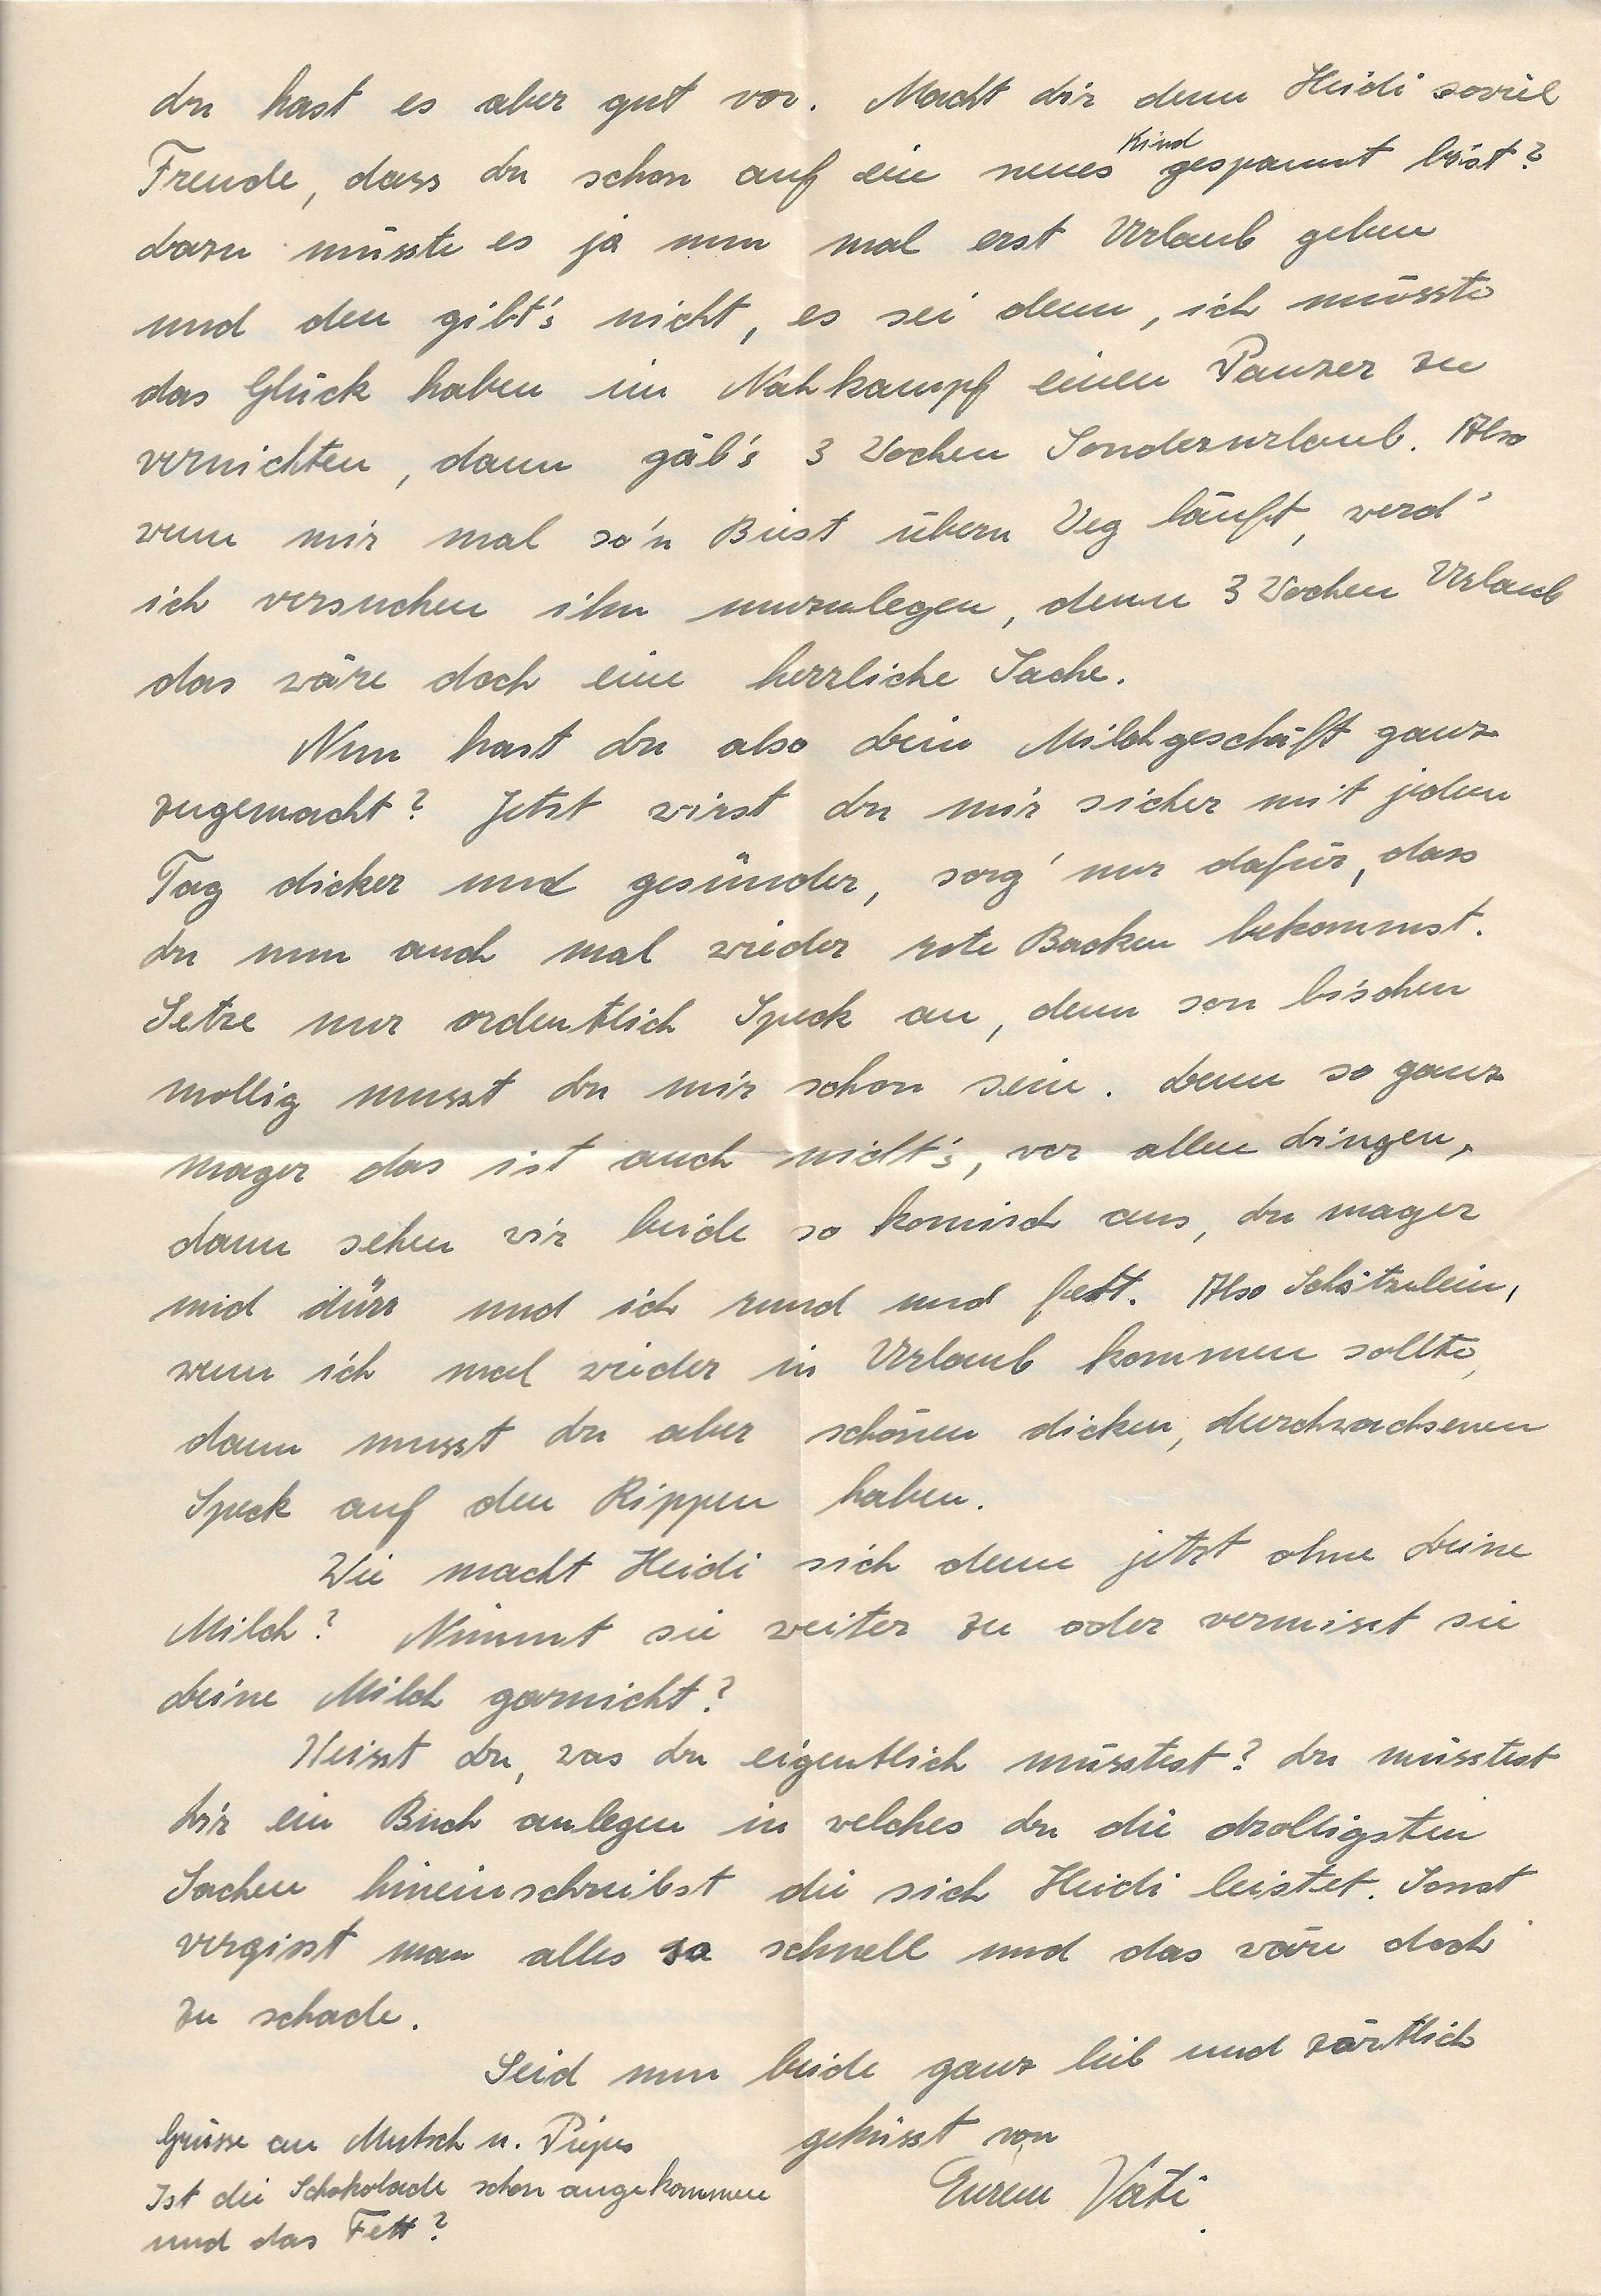 du hast es aber gut vor. Macht dir denn Heidi soviel
Freude, dass du schon auf ein neues Kind gespannt bist?
Dazu müsste es ja nun mal erst Urlaub geben
und den gibt's nicht, es sei denn, ich müsste
das Glück haben im Nahkampf einen Panzer zu
vernichten, dann gäb's 3 Wochen Sonderurlaub. Also
wenn mir mal so'n Biest übern Weg läuft, werd'
ich versuchen ihn umzulegen, denn 3 Wochen Urlaub
das wäre doch eine herrliche Sache.
Nun hast du also dein Milchgeschäft ganz
zugemacht? Jetzt wirst du mir sicher mit jedem
Tag dicker und gesünder, sorg' nur dafür, dass
du nun auch mal wieder rote Backen bekommst.
Setze nur ordentlich Speck an, denn son bischen
mollig musst du mir schon sein. Denn so ganz
mager das ist auch nicht's, vor allen Dingen,
dann sehen wir beide so komisch aus, du mager
und dürr und ich rund und fett. Also Schätzelein,
wenn ich mal wieder in Urlaub kommen sollte,
dann musst du aber schönen dicken, durchwachsenen
Speck auf den Rippen haben.
Wie macht Heidi sich denn jetzt ohne Deine
Milch? Nimmt sie weiter zu oder vermisst sie
deine Milch garnicht?
Weisst du, was du eigentlich müsstest? Du müsstest
Dir ein Buch anlegen in welches du die drolligsten
Sachen hineinschreibst die sich Heidi leistet. Sonst
vergisst man alles so schnell und das wäre doch
zu schade.
Seid nun beide ganz lieb und zärtlich
geküsst von
Eurem Vati.
Grüsse an Mutsch u. Piepus
Ist die Schokolade schon angekommen
und das Fett?